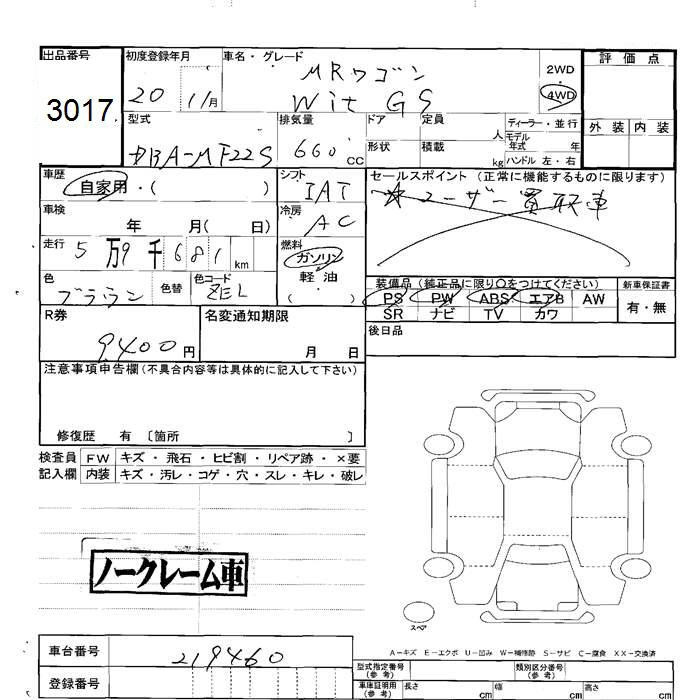 出品番号 初度登録年月 車名・グレード 評価点
3017 20 11月 MRワゴン 2WD
Wit GS 4WD
型式 排気量 ドア 定員 ディーラー・並行 外装 内装
人 モデル年式 年
DBA-MF22S 660 CC 形状 積載 kg ハンドル 左・右
車歴 シフト セールスポイント (正常に機能するものに限ります)
自家用・( ) IAT ☆ユーザー買取車
車検 冷房
年 月( 日) AC
走行 5万9千681km 燃料
ガソリン
色 色替 色コード 軽油 装備品 (純正品に限り○をつけてください) 新車保証書
ブラウン ZEL ( ) PS PW ABS エアB AW 有・無
SR ナビ TV カワ
R券 名変通知期限 後日品
9400円 月 日
注意事項申告欄(不具合内容等は具体的に記入して下さい)
修復歴 有 〔箇所 〕
検査員 FW キズ・飛石・ヒビ割・リペア跡・×要
記入欄 内装 キズ・汚レ・コゲ・穴・スレ・キレ・破レ
ノークレーム車
スペア
A-キズ E-エクボ U-凹み W-補修跡 S-サビ C-腐食 XX-交換済
車台番号 219460 型式指定番号(参考) 類別区分番号(参考)
登録番号 車庫証明用(参考) 長さ cm 幅 cm 高さ cm